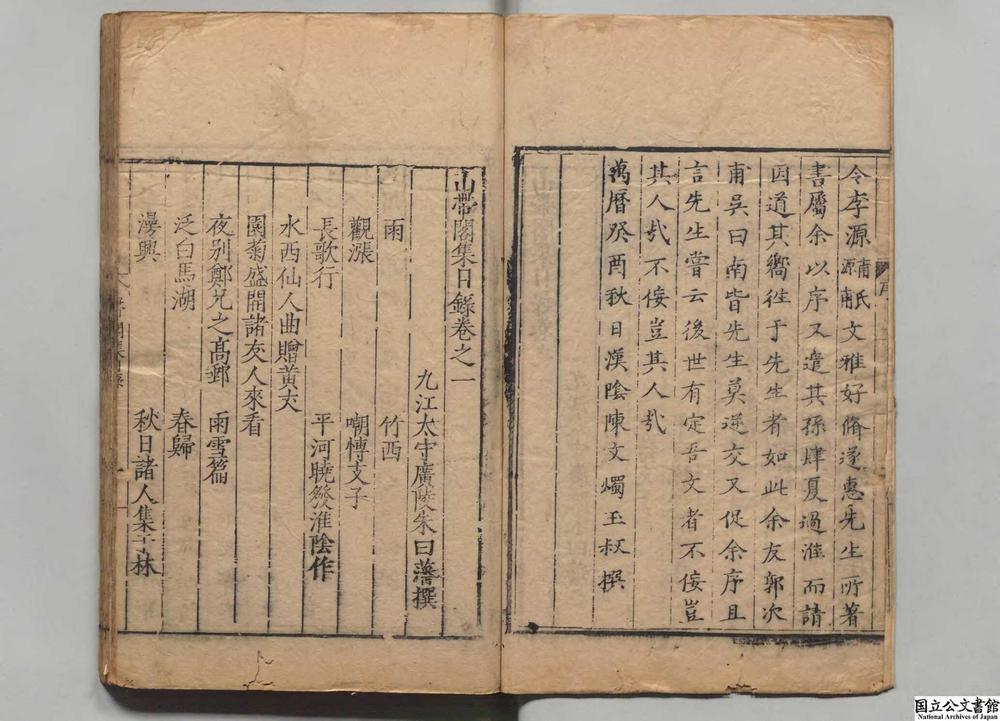 序
令李源甫氏源甫文雅好脩遂惠先生所著
書屬余以序又遣其孫肆夏過淮而請
因道其嚮往于先生者如此余友郭次
甫吳曰南皆先生莫逆交又促余序且
言先生嘗云後世有定吾文者不佞豈
其人哉不佞豈其人哉
萬曆癸酉秋日漢陰陳文燭玉叔撰
山帶閣集目錄卷之一
九江太守廣陵朱曰藩撰
雨　竹西
觀漲　嘲慱文子
長歌行　平河曉發淮陰作
水西仙人曲贈黃大
園菊盛開諸友人來看
夜别鄭兄之高郵　雨雪篇
泛白馬湖　春歸
漫興　秋日諸人集子林
国立公文書館
National Archives of Japan